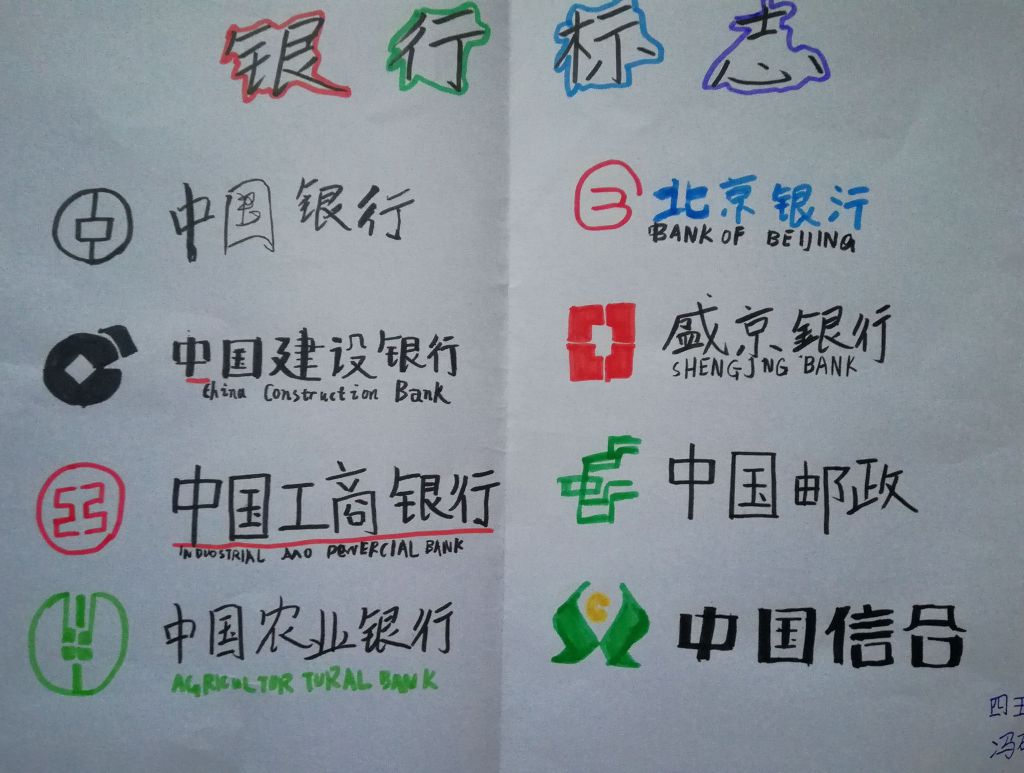 银行标志
中国银行
中国建设银行
China Construction Bank
中国工商银行
INDUOSTRIAL AND
BANK
中国农业银行
AGRICULTOR TURAL BANK
北京银行
BANK OF BEIJING
盛京银行
SHENGJING BANK
中国邮政
中国信合
四五
冯